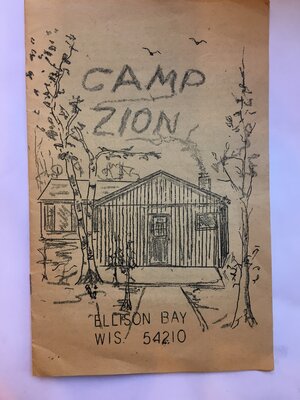 CAMP
ZION
ELLISON BAY
WIS 54210